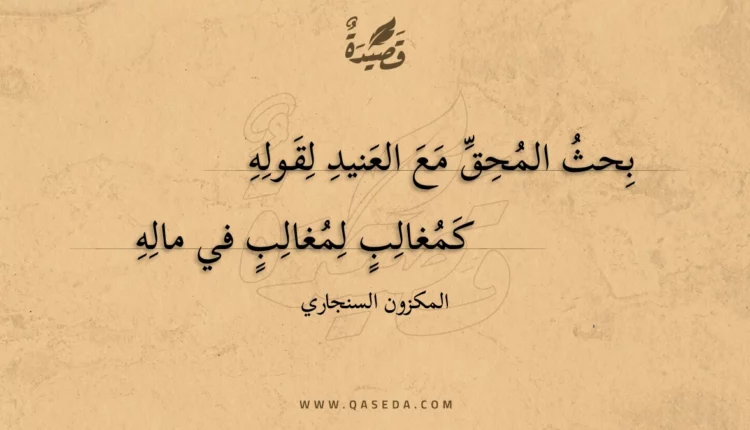 قَصِيْدَةٌ
بِحثُ المُحِقِّ مَعَ العَنيدِ لِقَولِهِ
كَمُغالِبٍ لِمُغالِبٍ في مالِهِ
المكزون السنجاري
WWW.QASEDA.COM